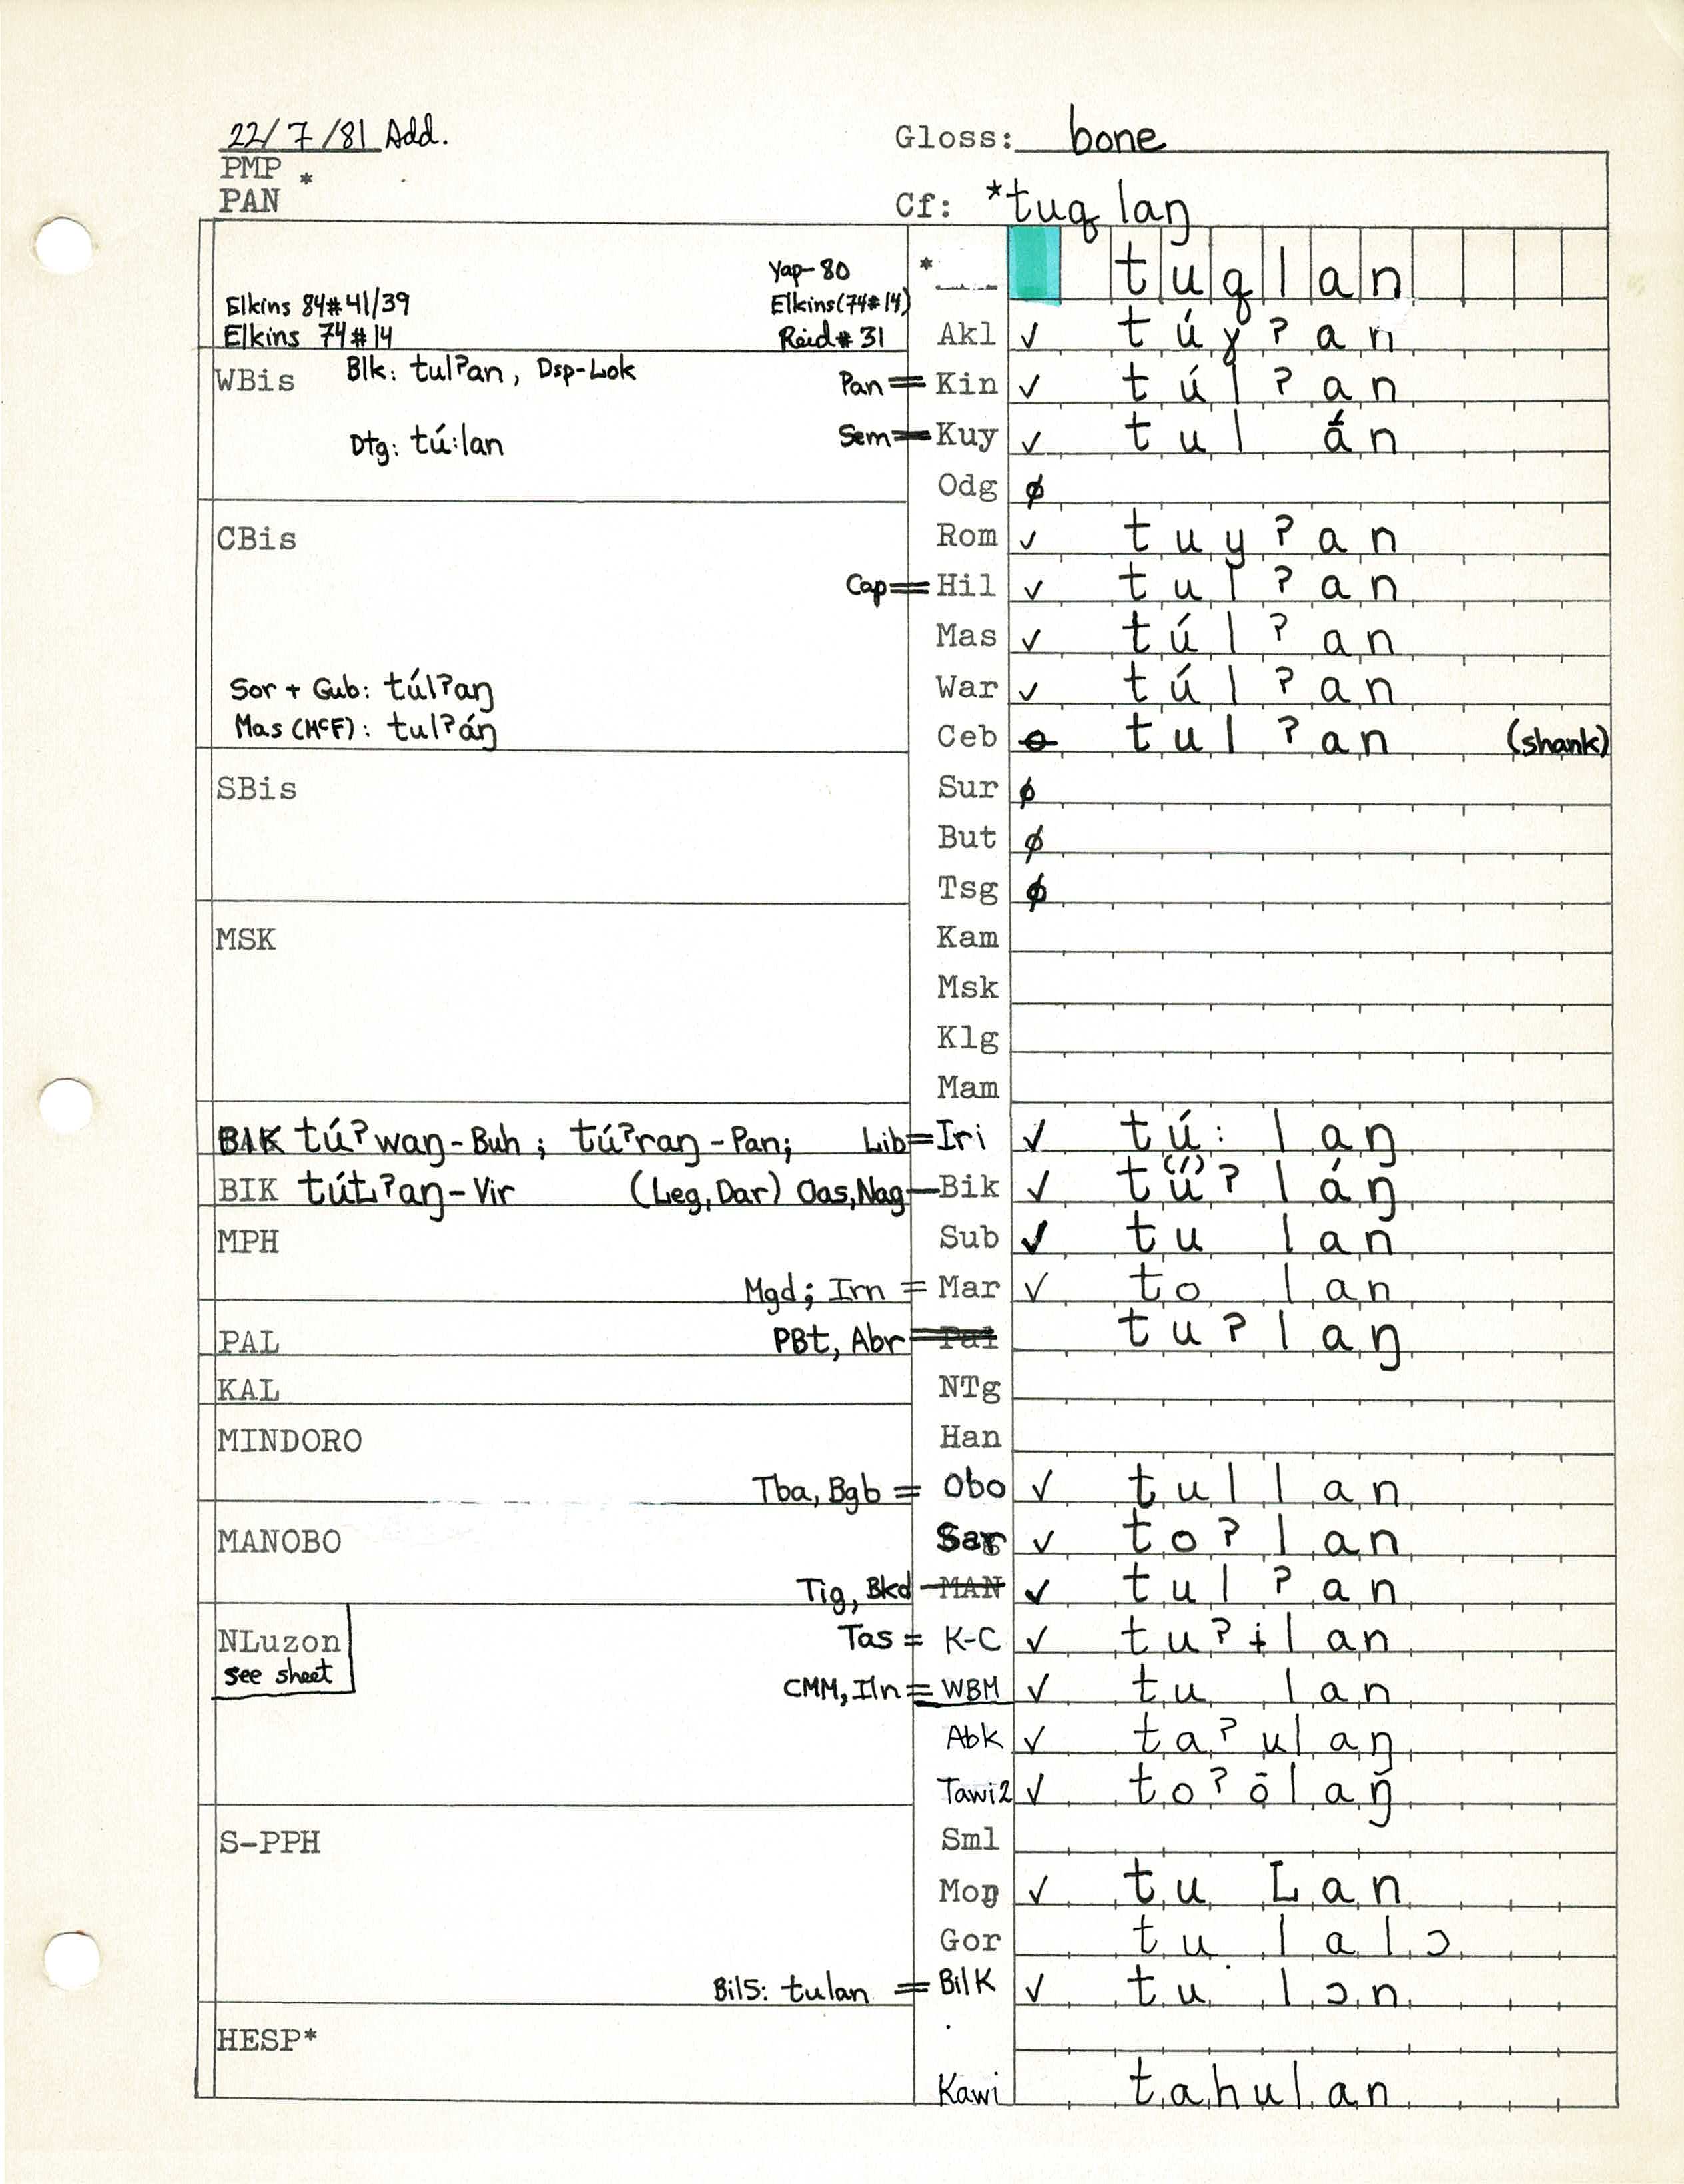 22/7/81 Add. Gloss: bone
PMP *
PAN Cf: *tuqlaŋ
Yap-80 * tuqlan
Elkins 84#41/39 Elkins(74#14)
Elkins 74#14 Reid#31 Akl ✓ túɣʔan
WBis Blk: tulʔan, Dsp-Lok Pan = Kin ✓ túlʔan
Dtg: tú:lan Sem = Kuy ✓ tul án
Odg ø
CBis Rom ✓ tuyʔan
Cap = Hil ✓ tulʔan
Mas ✓ túlʔan
Sor + Gub: túlʔaŋ War ✓ túlʔan
Mas (McF): tulʔáŋ Ceb ø tulʔan (shank)
SBis Sur ø
But ø
Tsg ø
MSK Kam
Msk
Klg
Mam
BIK túʔwaŋ-Buh; túʔraŋ-Pan; Lib = Iri ✓ tú: laŋ
BIK -Vir (Leg, Dar) Oas, Nag — Bik ✓ tú(/)ʔláŋ
MPH Sub ✓ tu lan
Mgd; Irn = Mar ✓ to lan
PAL PBt, Abr = Pal tuʔlaŋ
KAL NTg
MINDORO Han
Tba, Bgb = Obo ✓ tullan
MANOBO Sar ✓ toʔlan
Tig, Bkd — MAN ✓ tulʔan
NLuzon Tas = K-C ✓ tuʔɨlan
see sheet
CMM, Iln = WBM ✓ tu lan
Abk ✓ taʔulaŋ
Tawi2 ✓ toʔōlaŋ
S-PPH Sml
Moŋ ✓ tu Lan
Gor tu lalɔ
BilS: tulan = BilK ✓ tu lɔn
HESP*
Kawi tahulan